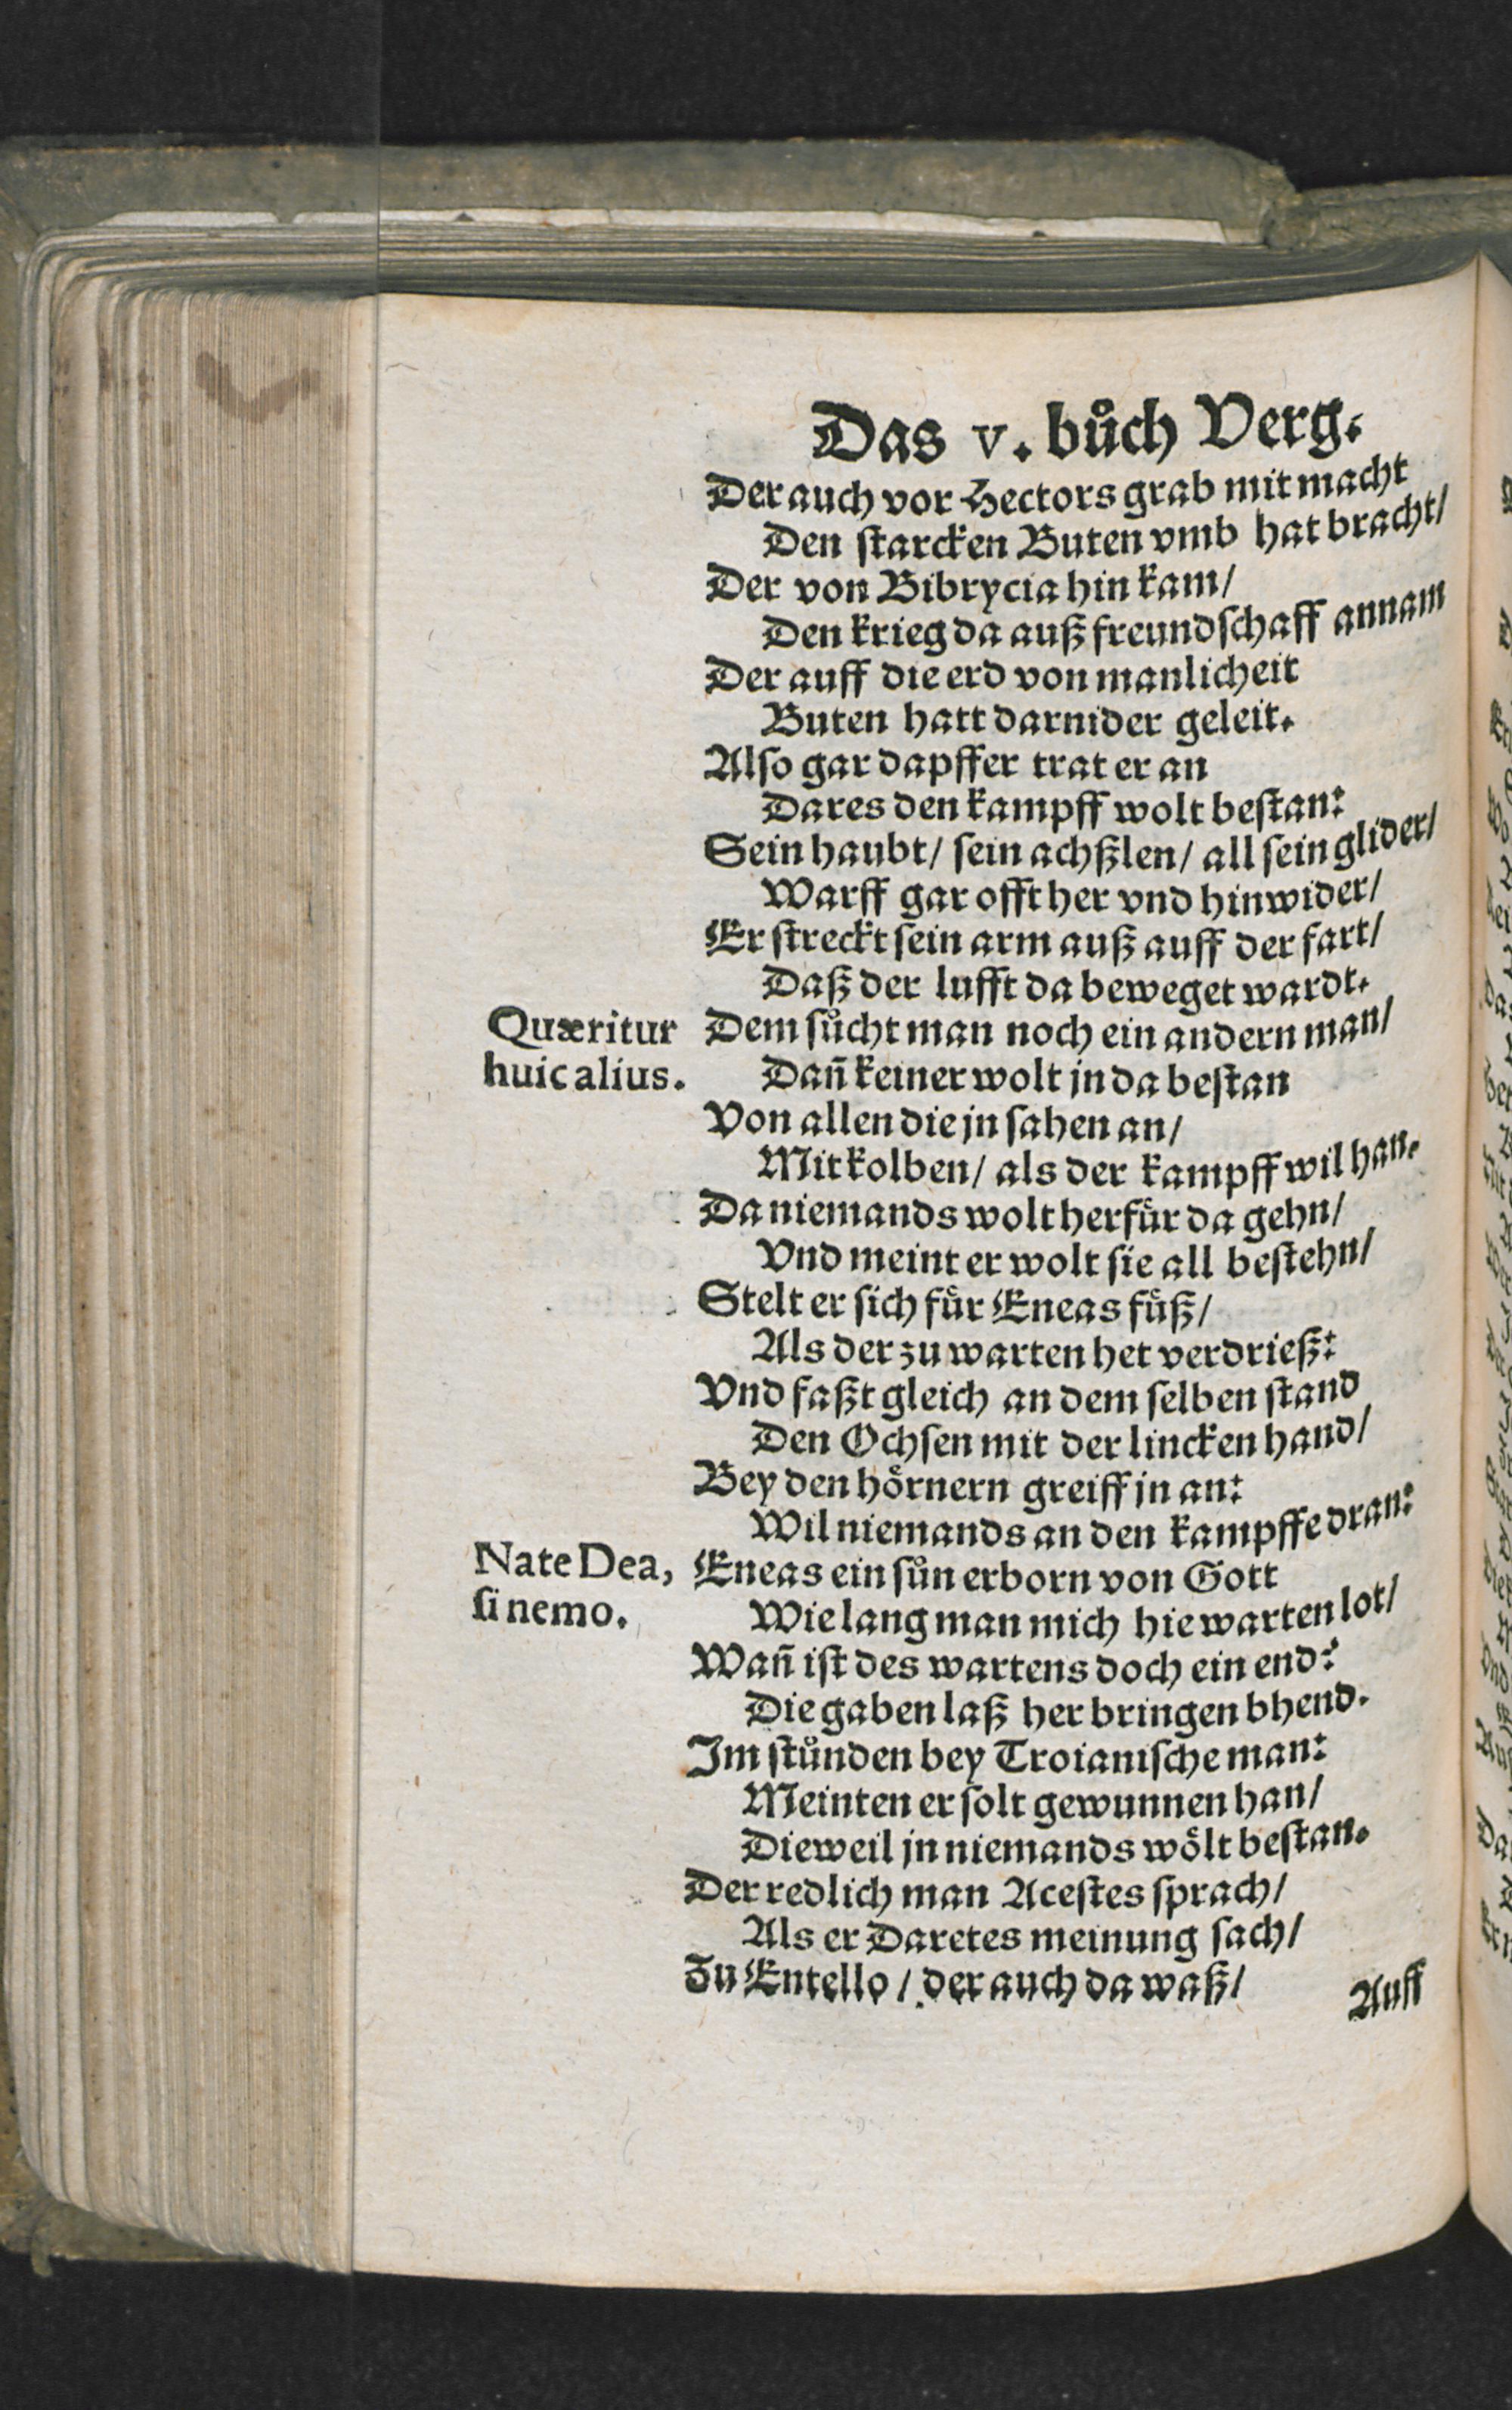 Das v. bůch Verg.
Der auch vor Hectors grab mit macht
Den starcken Buten vmb hat bracht/
Der von Bibrycia hin kam/
Den krieg da auß freundschaff annam
Der auff die erd von manlicheit
Buten hatt darnider geleit.
Also gar dapffer trat er an
Dares den kampff wolt bestan:
Sein haubt/ sein achßlen/ all sein glider/
Warff gar offt her vnd hinwider/
Er streckt sein arm auß auff der fart/
Daß der lufft da beweget wardt.
Quæritur
huic alius.
Dem sůcht man noch ein andern man/
Dañ keiner wolt jn da bestan
Von allen die jn sahen an/
Mit kolben/ als der kampff wil han.
Da niemands wolt herfůr da gehn/
Vnd meint er wolt sie all bestehn/
Stelt er sich fůr Eneas fůß/
Als der zu warten het verdrieß:
Vnd faßt gleich an dem selben stand
Den Ochsen mit der lincken hand/
Bey den hoͤrnern greiff jn an:
Wil niemands an den kampffe dran:
Nate Dea,
si nemo.
Eneas ein sůn erborn von Gott
Wie lang man mich hie warten lot/
Wañ ist des wartens doch ein end?
Die gaben laß her bringen bhend.
Im stůnden bey Troianische man:
Meinten er solt gewunnen han/
Dieweil jn niemands woͤlt bestan.
Der redlich man Acestes sprach/
Als er Daretes meinung sach/
Zu Entello/ der auch da waß/
Auff